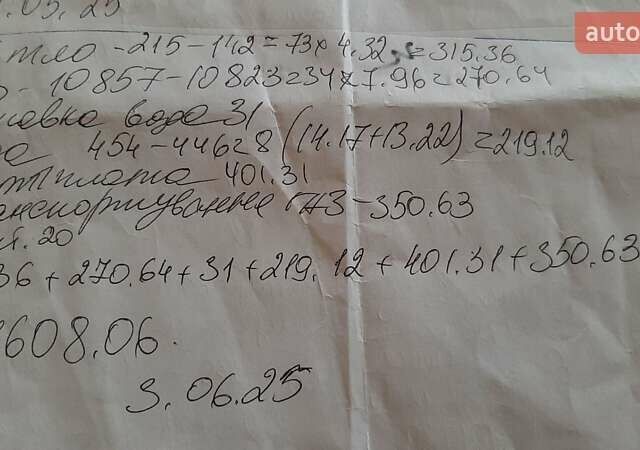 .05.25
auto
тло -215-142=73×4.32=315.36
- 10857-10823=34×7.96=270.64
вода 31
454-446=8 (14.17+13.22)=219.12
плата 401.31
анспортування ГАЗ-350.63
.20
36+270.64+31+219.12+401.31+350.63
608.06.
3.06.25